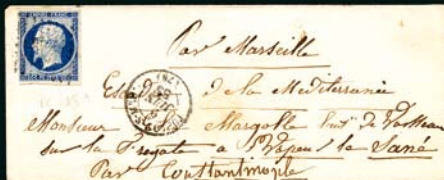 EMPIRE FRANC
Par Marseille
Escadre de la Mediterranée
Monsieur Margollé Lieut de Vaisseau
sur la Fregate a Vapeur / le Sané
Par Constantinople